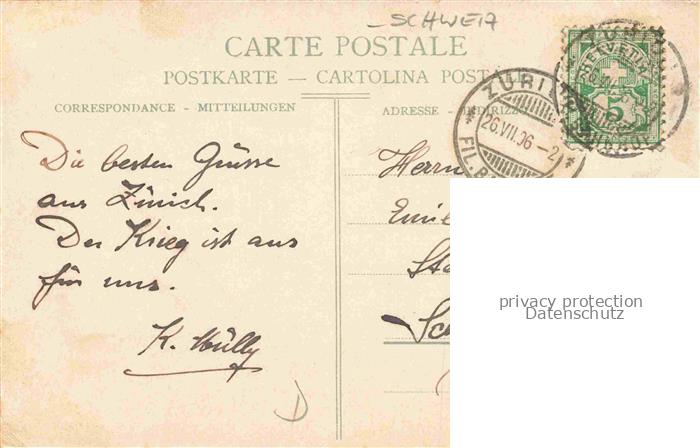 SCHWEIZ
CARTE POSTALE
POSTKARTE — CARTOLINA POSTALE
CORRESPONDANCE - MITTEILUNGEN
ADRESSE - INDIRIZZO
ZÜRI
26.VII.06.-2
FIL.B
HELVETIA
5
Die besten Grüsse
aus Zürich.
Der Krieg ist aus
für uns.
Herrn
Emil
Sc
privacy protection
Datenschutz
D